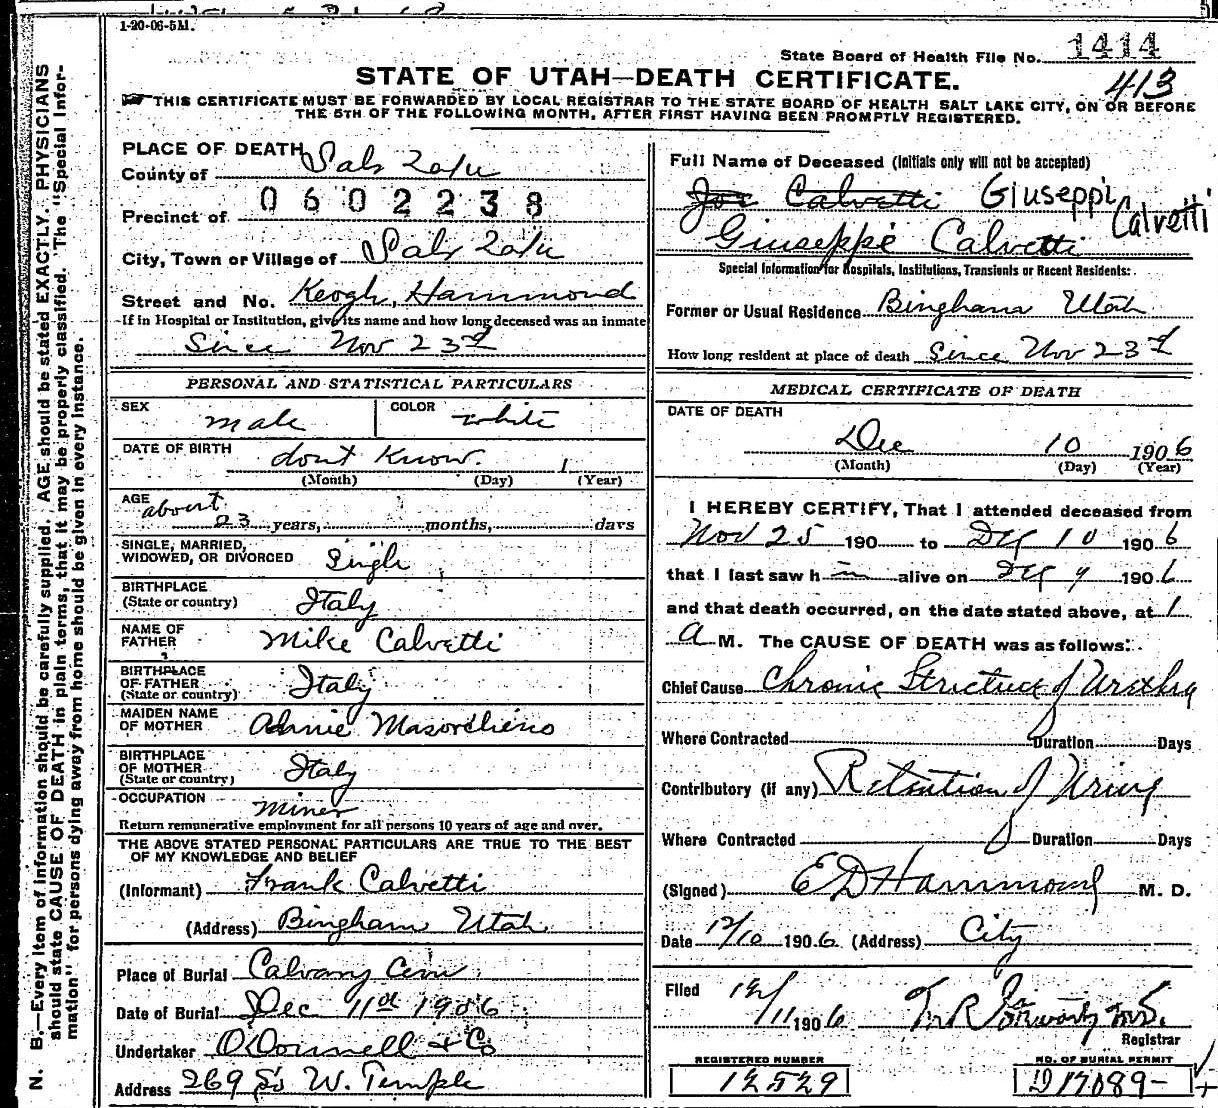 1-20-06-5M.
State Board of Health File No. 1414
413
STATE OF UTAH—DEATH CERTIFICATE.
THIS CERTIFICATE MUST BE FORWARDED BY LOCAL REGISTRAR TO THE STATE BOARD OF HEALTH SALT LAKE CITY, ON OR BEFORE
THE 5TH OF THE FOLLOWING MONTH, AFTER FIRST HAVING BEEN PROMPTLY REGISTERED.
N. B.—Every item of information should be carefully supplied. AGE should be stated EXACTLY. PHYSICIANS
should state CAUSE OF DEATH in plain terms, that it may be properly classified. The "Special Infor-
mation" for persons dying away from home should be given in every instance.
PLACE OF DEATH
County of Salt Lake
0602238
Precinct of
City, Town or Village of Salt Lake
Street and No. Keogh, Hammond
If in Hospital or Institution, give its name and how long deceased was an inmate
Since Nov 23rd
PERSONAL AND STATISTICAL PARTICULARS
SEX male COLOR white
DATE OF BIRTH dont Know. 1
(Month) (Day) (Year)
AGE about
23 years, months, days
SINGLE, MARRIED,
WIDOWED, OR DIVORCED Single
BIRTHPLACE
(State or country) Italy
NAME OF
FATHER Mike Calvetti
BIRTHPLACE
OF FATHER
(State or country) Italy
MAIDEN NAME
OF MOTHER Annie
BIRTHPLACE
OF MOTHER
(State or country) Italy
OCCUPATION Miner
Return remunerative employment for all persons 10 years of age and over.
THE ABOVE STATED PERSONAL PARTICULARS ARE TRUE TO THE BEST
OF MY KNOWLEDGE AND BELIEF
(Informant) Frank Calvetti
(Address) Bingham Utah
Place of Burial Calvary Cem
Date of Burial Dec 11th 1906
Undertaker O'Donnell & Co
Address 269 So W. Temple
Full Name of Deceased (Initials only will not be accepted)
Joe Calvetti Giuseppi Calvetti
Giuseppe Calvetti
Special Information for Hospitals, Institutions, Transients or Recent Residents:
Former or Usual Residence Bingham Utah
How long resident at place of death Since Nov 23rd
MEDICAL CERTIFICATE OF DEATH
DATE OF DEATH
Dec 10 1906
(Month) (Day) (Year)
I HEREBY CERTIFY, That I attended deceased from
Nov 25 190 to Dec 10 1906
that I last saw him alive on Dec 9 1906
and that death occurred, on the date stated above, at 1
A M. The CAUSE OF DEATH was as follows:
Chief Cause Chronic Stricture of Urethra
Where Contracted Duration Days
Contributory (if any) Retention of Urine
Where Contracted Duration Days
(Signed) E D Hammond M. D.
Date 12/10 1906 (Address) City
Filed 12/11 1906
Registrar
REGISTERED NUMBER
12529
NO. OF BURIAL PERMIT
D 17089-